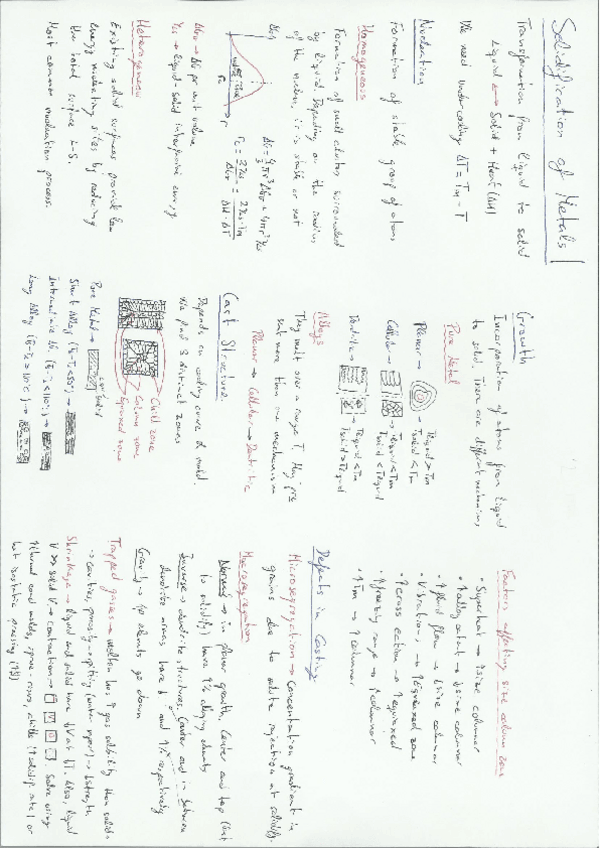 Solidification of Metals
Transformation from liquid to solid
Liquid ⟷ Solid + Heat (ΔH)
We need undercooling ΔT = Tm - T
Nucleation
Formation of stable group of atoms
Homogeneous
Formation of small clusters surrounded
by liquid. Depending on the radius
of the nucleus, it is stable or not
ΔGv → ΔG per unit volume
γLS → Liquid-solid interphase energy
Heterogeneous
Existing solid surfaces provide low
energy nucleating sites by reducing
the total surface L-S.
Most common nucleation process.
Growth
Incorporation of atoms from liquid
to solid. There are different mechanisms,
Pure Metal
Planar → Tliquid > Tm
Tsolid < Tm
Cellular → Tliquid < Tm
Tsolid < Tliquid
Dendritic → Tliquid < Tm
Tsolid > Tliquid
Alloys
They melt over a range T, they pre
sent more than one mechanism
Planar → Cellular → Dendritic
Cast Structure
Depends on cooling curve & mould.
We find 3 distinct zones
Chill zone
Column zone
Equiaxed zone
Pure Metal →
Short Alloy
Intermediate
Long Alloy
Factors affecting size column zone
· Superheat → ↑size columnar
· ↑alloy content → ↓size columnar
· ↑fluid flow → ↓size columnar
· Vibrations, → ↑Equiaxed zone
· ↑cross section → ↑equiaxed
· ↑freezing range → ↑columnar
· ↑Tm → ↑columnar
Defects in Casting
Microsegregation → Concentration gradient in
grains due to solute rejection at solidify.
Macrosegregation
Normal → in planar growth, Center and top (last
to solidify) have ↑% alloying elements
Inverse → dendrite structures, Center and in between
dendrite areas have ↓ and ↑% respectively
Gravity → ↑ρ elements go down
Trapped gasses → molten has ↑ gas solubility than solids
→ cavities, porosity → spitting (water vapor) → ↓strength
Shrinkage → liquid and solid have ↓V at ↓T. Also, liquid
V >> solid V → contraction → Solve using
hot isostatic pressing